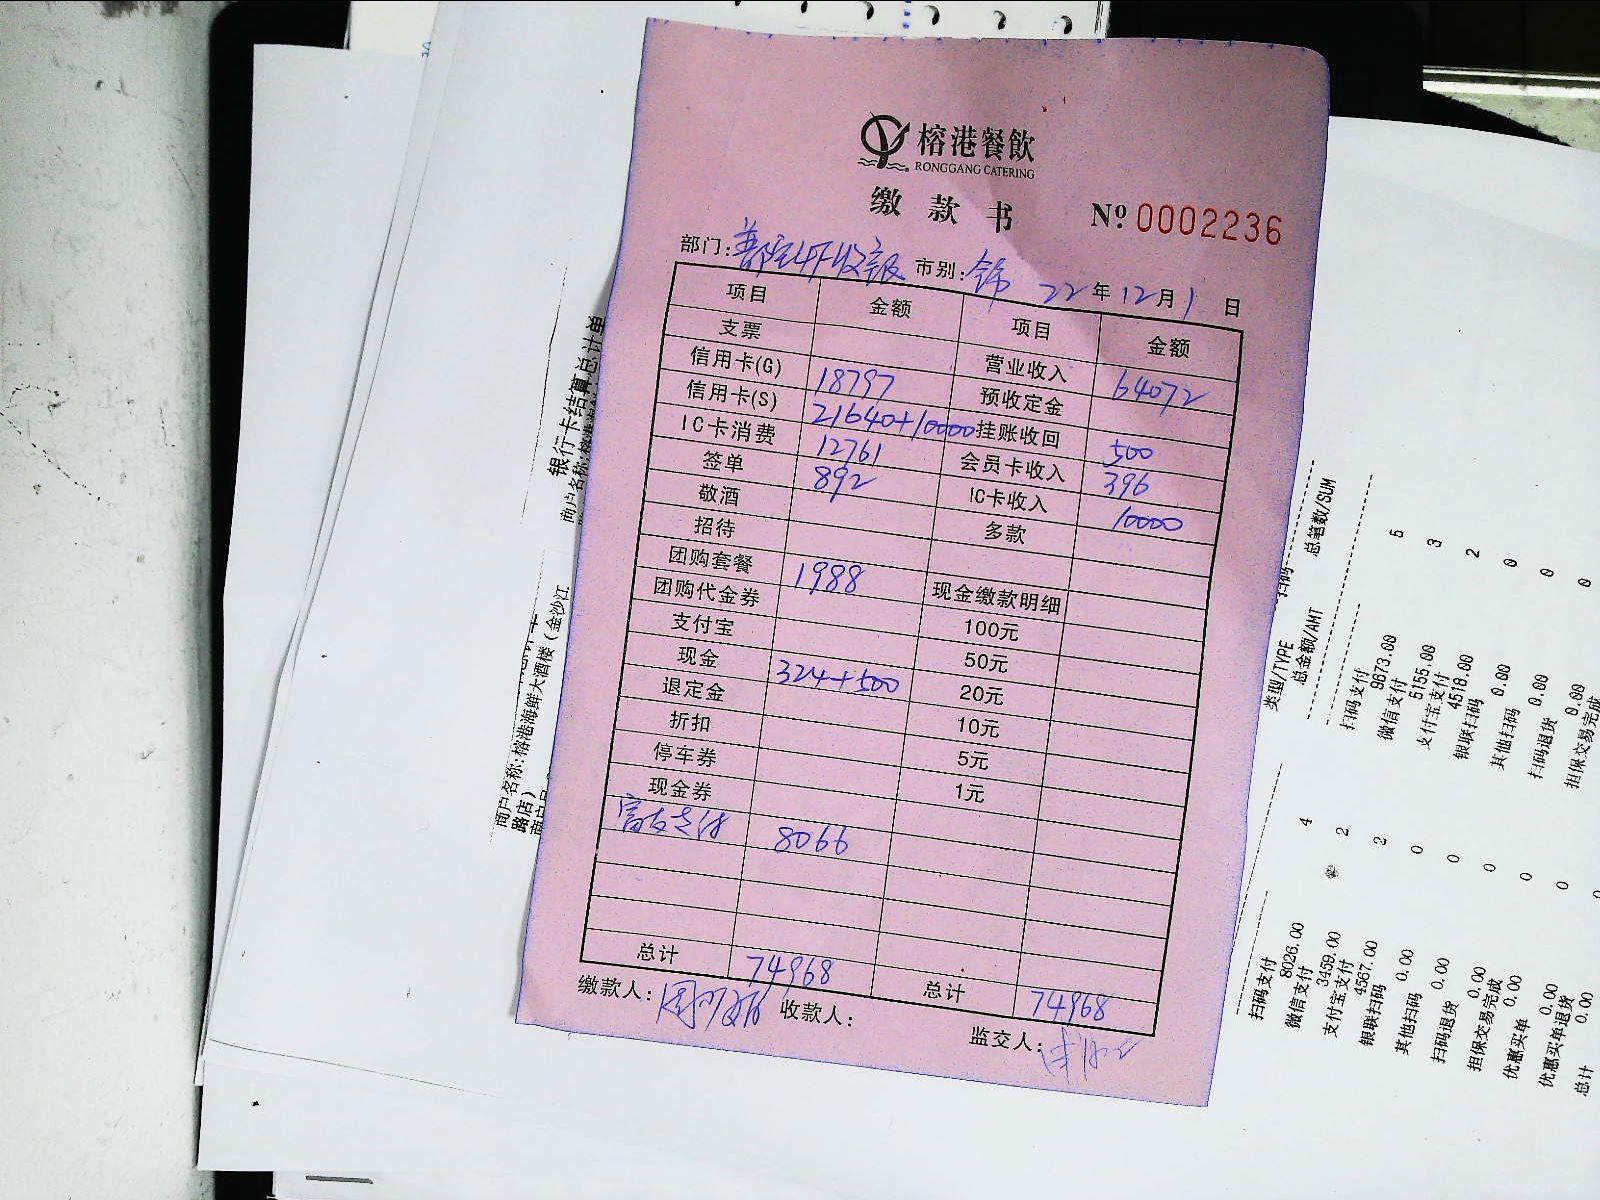 榕港餐飲
RONGGANG CATERING
缴款书 Nº 0002236
部门: 市别: 22年12月1日
项目 金额 项目 金额
支票 营业收入 64072
信用卡(G) 18797 预收定金
信用卡(S) 21640+10000 挂账收回 500
IC卡消费 12761 会员卡收入 396
签单 892 IC卡收入 10000
敬酒 多款
招待
团购套餐 1988 现金缴款明细
团购代金券 100元
支付宝 50元
现金 324+500 20元
退定金 10元
折扣 5元
停车券 1元
现金券
富友支付 8066
总计 74968 总计 74968
缴款人: 收款人: 监交人:
银行卡结算总计单
商户名称:榕港海鲜
商户名称:榕港海鲜大酒楼(金沙江
路店)
类型/TYPE 扫码 总笔数/SUM
总金额/AMT
扫码支付 5
9673.00
微信支付 3
5155.00
支付宝支付 2
4518.00
银联扫码 0
0.00
其他扫码 0
0.00
扫码退货 0
0.00
担保交易完成
扫码支付 4
8026.00
微信支付 2
3459.00
支付宝支付 2
4567.00
银联扫码 0
0.00
其他扫码 0
0.00
扫码退货 0
0.00
担保交易完成 0
0.00
优惠买单 0
0.00
优惠买单退货
0.00
总计